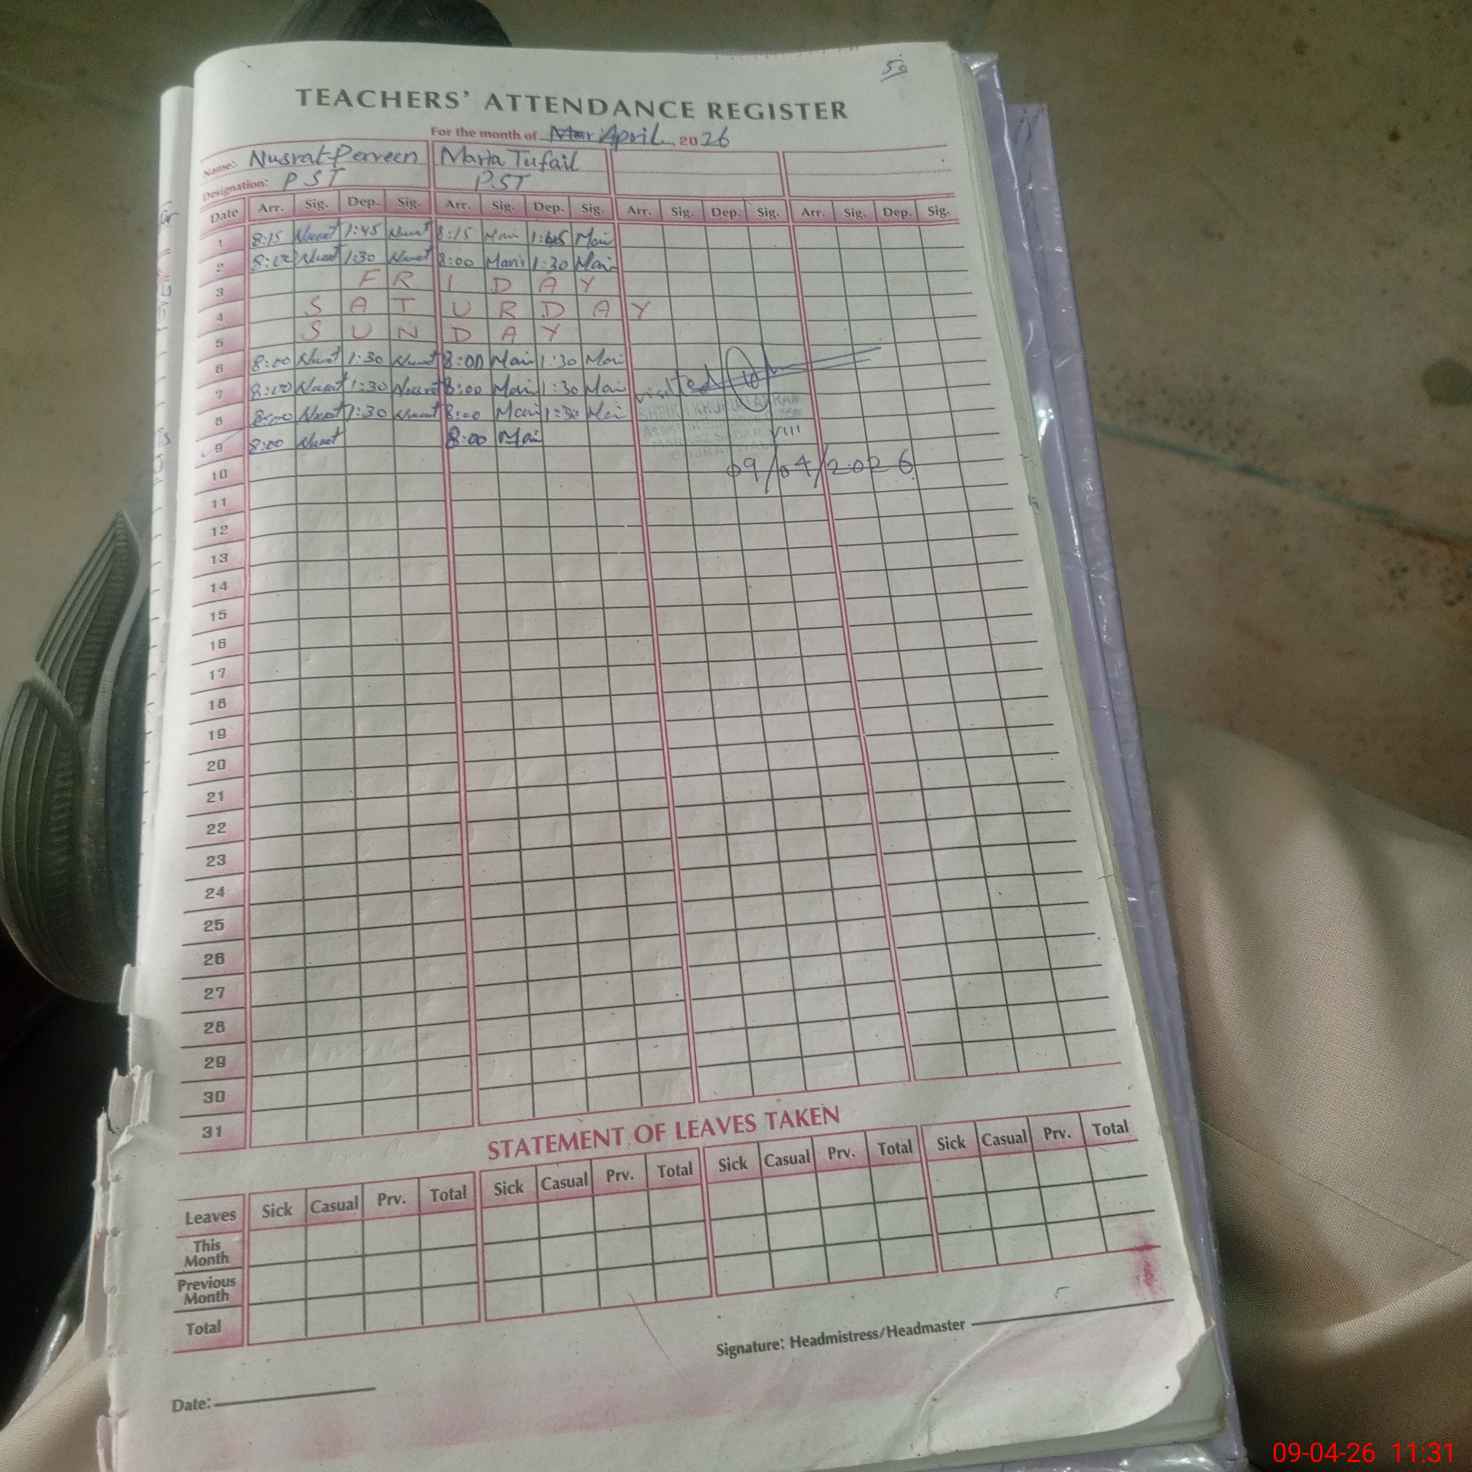 50
TEACHERS' ATTENDANCE REGISTER
For the month of Mar April 2026
Name: Nusrat Perveen Maria Tufail
Designation: PST PST
Date Arr. Sig. Dep. Sig. Arr. Sig. Dep. Sig. Arr. Sig. Dep. Sig. Arr. Sig. Dep. Sig.
1 8:15 Nusrat 1:45 Nusrat 8:15 Mari 1:45 Mari
2 8:00 Nusrat 1:30 Nusrat 8:00 Mari 1:30 Mari
3 FRIDAY
4 SATURDAY
5 SUNDAY
6 8:00 Nusrat 1:30 Nusrat 8:00 Mari 1:30 Mari
7 8:00 Nusrat 1:30 Nusrat 8:00 Mari 1:30 Mari
visited
8 8:00 Nusrat 1:30 Nusrat 8:00 Mari 1:30 Mari
VIII
9 8:00 Nusrat 8:00 Mari
09/04/2026
10
11
12
13
14
15
16
17
18
19
20
21
22
23
24
25
26
27
28
29
30
31
STATEMENT OF LEAVES TAKEN
Leaves Sick Casual Prv. Total Sick Casual Prv. Total Sick Casual Prv. Total Sick Casual Prv. Total
This Month
Previous Month
Total
Signature: Headmistress/Headmaster
Date:
09-04-26 11:31